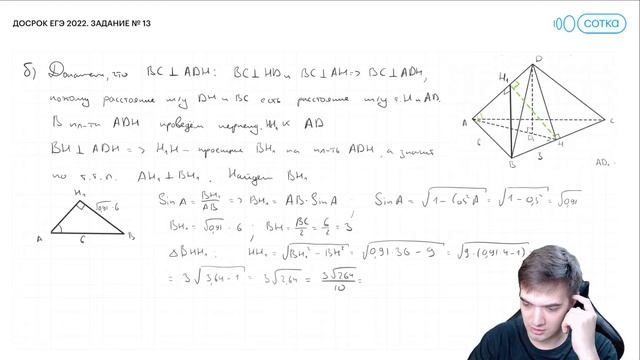 ДОСРОК ЕГЭ 2022. ЗАДАНИЕ № 13
сотка
б) Докажем, что BC ⊥ ADH: BC ⊥ HD и BC ⊥ AH => BC ⊥ ADH,
поэтому расстояние м/у DH и BC есть расстояние м/у т. H и AD.
В пл-ти ADH проведем перпенд. HH₁ к AD
BH ⊥ ADH => H₁H - проекция BH₁ на пл-ть ADH, а значит
по т.т.п. AH₁ ⊥ BH₁. Найдем BH₁
Sin A = BH₁/AB => BH₁ = AB · Sin A ; Sin A = √(1 - Cos²A) = √(1 - 0,3²) = √0,91
BH₁ = √0,91 · 6 ; BH = BC/2 = 6/2 = 3 ;
△BHH₁: HH₁ = √(BH₁² - BH²) = √(0,91·36 - 9) = √(9·(0,91·4-1))
= 3√(3,64-1) = 3√2,64 = 3√264/10 =
H₁
√0,91 · 6
A
6
B
D
H₁
A
C
6
B
3
H
AD,